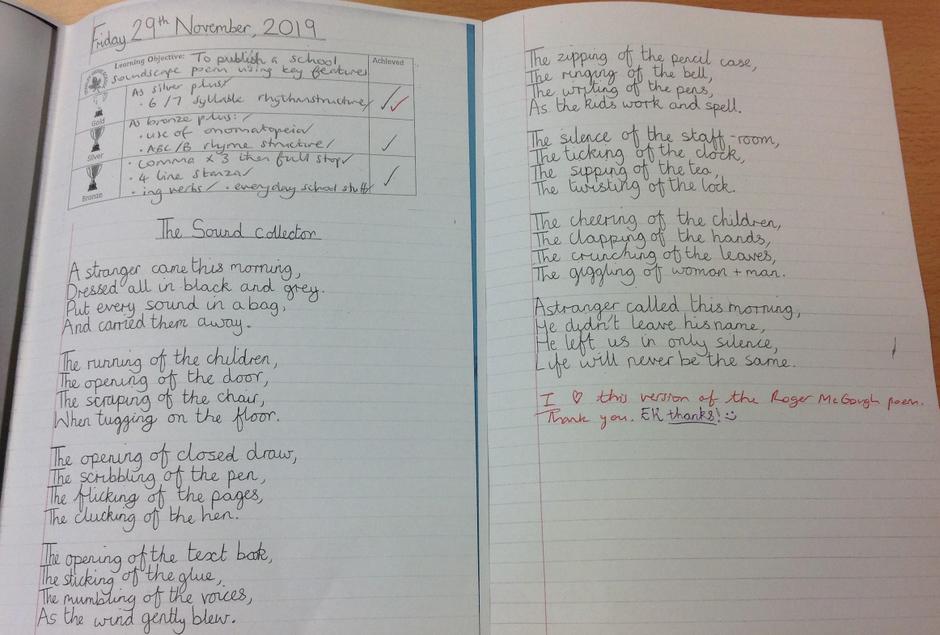 Friday 29th November, 2019
Learning Objective: To publish a school soundscape poem using key features
Achieved
As silver plus:
• 6/7 syllable rhythm structure
Gold
As bronze plus:
• use of onomatopoeia
• ABC/B rhyme structure
Silver
• comma x 3 then full stop
• 4 line stanza
• ing verbs • everyday school stuff
Bronze
The Sound Collector
A stranger came this morning,
Dressed all in black and grey.
Put every sound in a bag,
And carried them away.
The running of the children,
The opening of the door,
The scraping of the chair,
When tugging on the floor.
The opening of closed draw,
The scribbling of the pen,
The flicking of the pages,
The clucking of the hen.
The opening of the text book,
The sticking of the glue,
The mumbling of the voices,
As the wind gently blew.
The zipping of the pencil case,
The ringing of the bell,
The writing of the pens,
As the kids work and spell.
The silence of the staff-room,
The ticking of the clock,
The sipping of the tea,
The twisting of the lock.
The cheering of the children,
The clapping of the hands,
The crunching of the leaves,
The giggling of woman + man.
A stranger called this morning,
He didn't leave his name,
He left us in only silence,
Life will never be the same.
I ♡ this version of the Roger McGough poem.
Thank you. EK thanks! :)